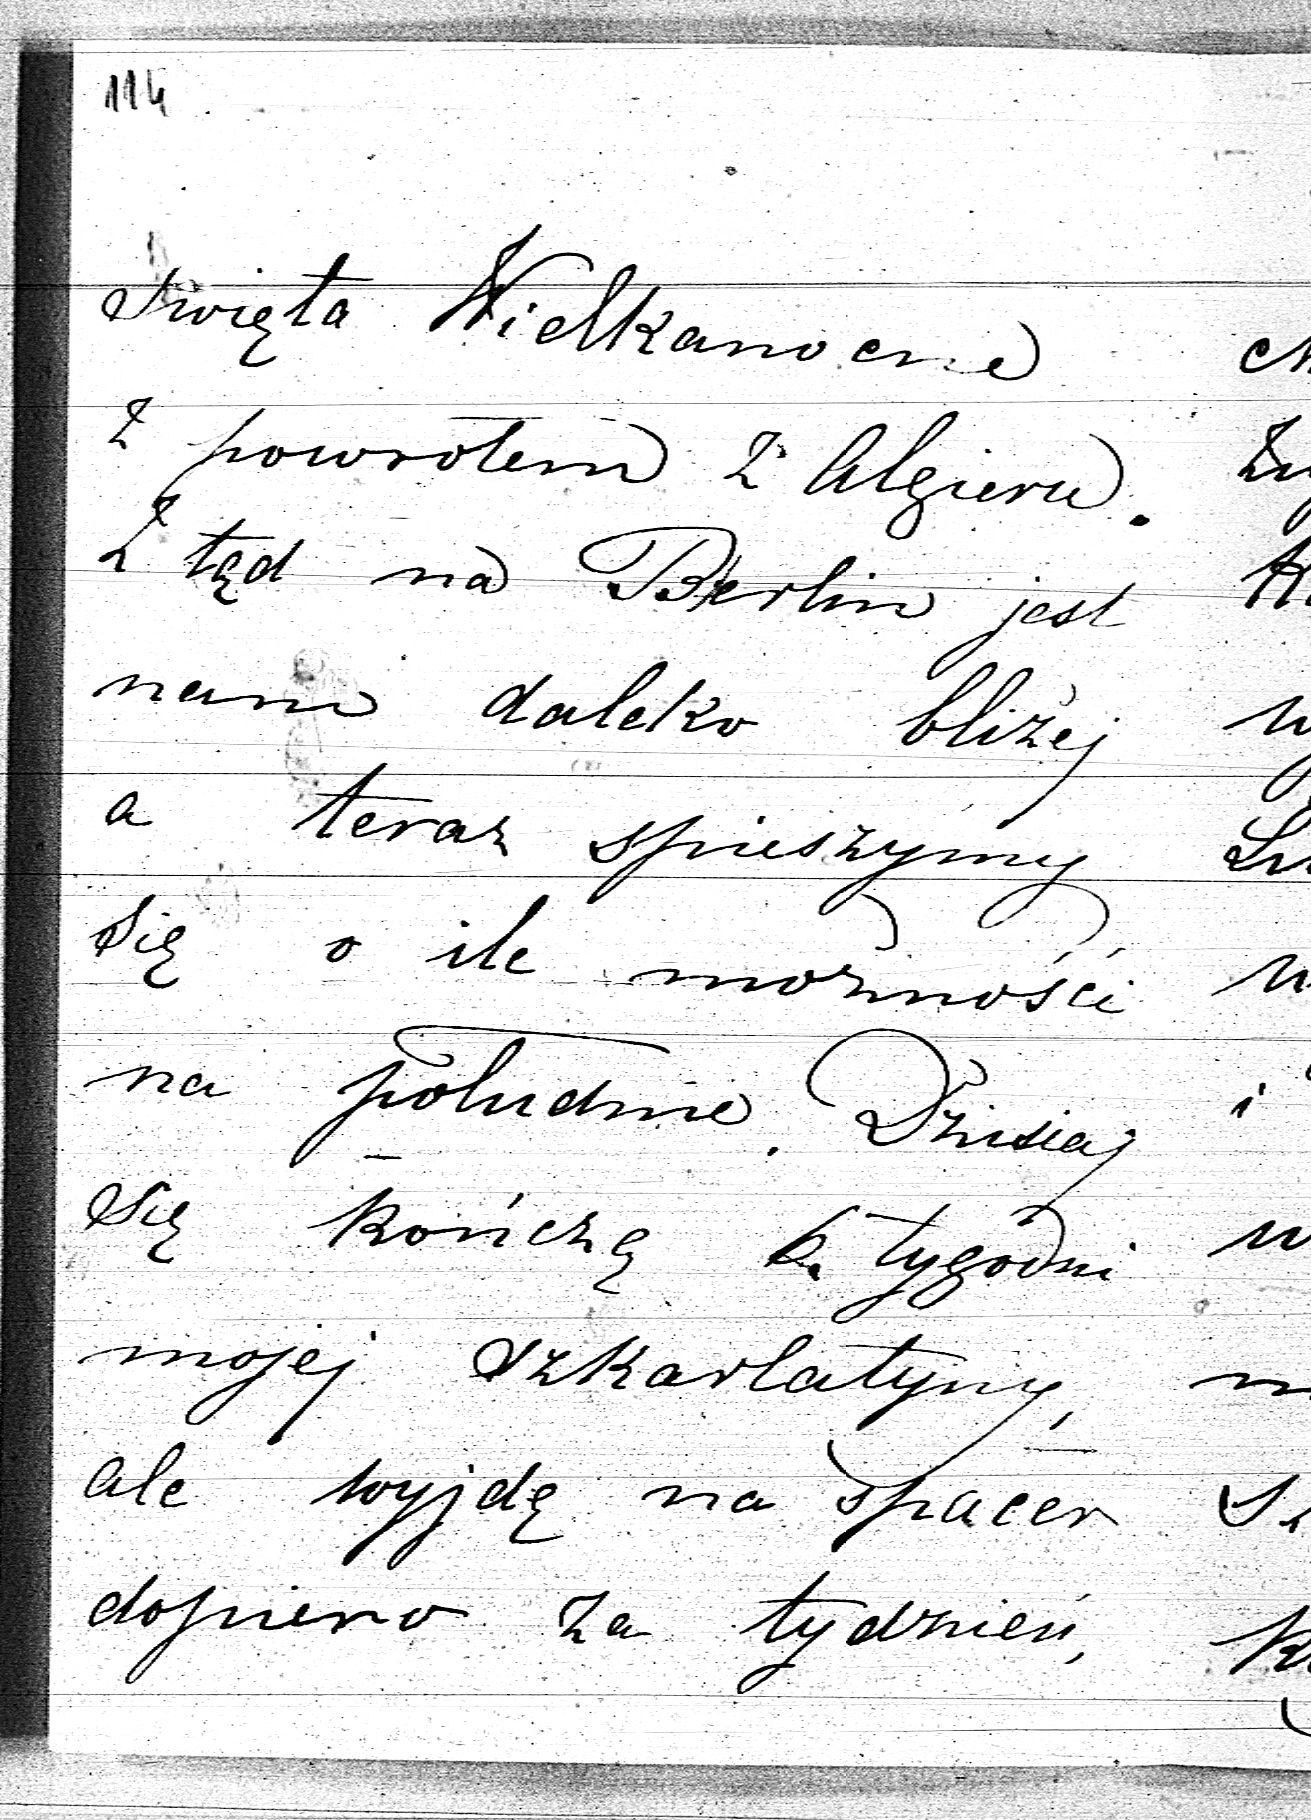 114
Święta Wielkanocne
z powrotem z Algieru.
Z tąd na Berlin jest
nam daleko bliżej
a teraz spieszymy
się o ile możności
na południe. Dzisiaj
się kończą 6. tygodni
mojej szkarlatyny,
ale wyjdę na spacer
dopiero za tydzień,